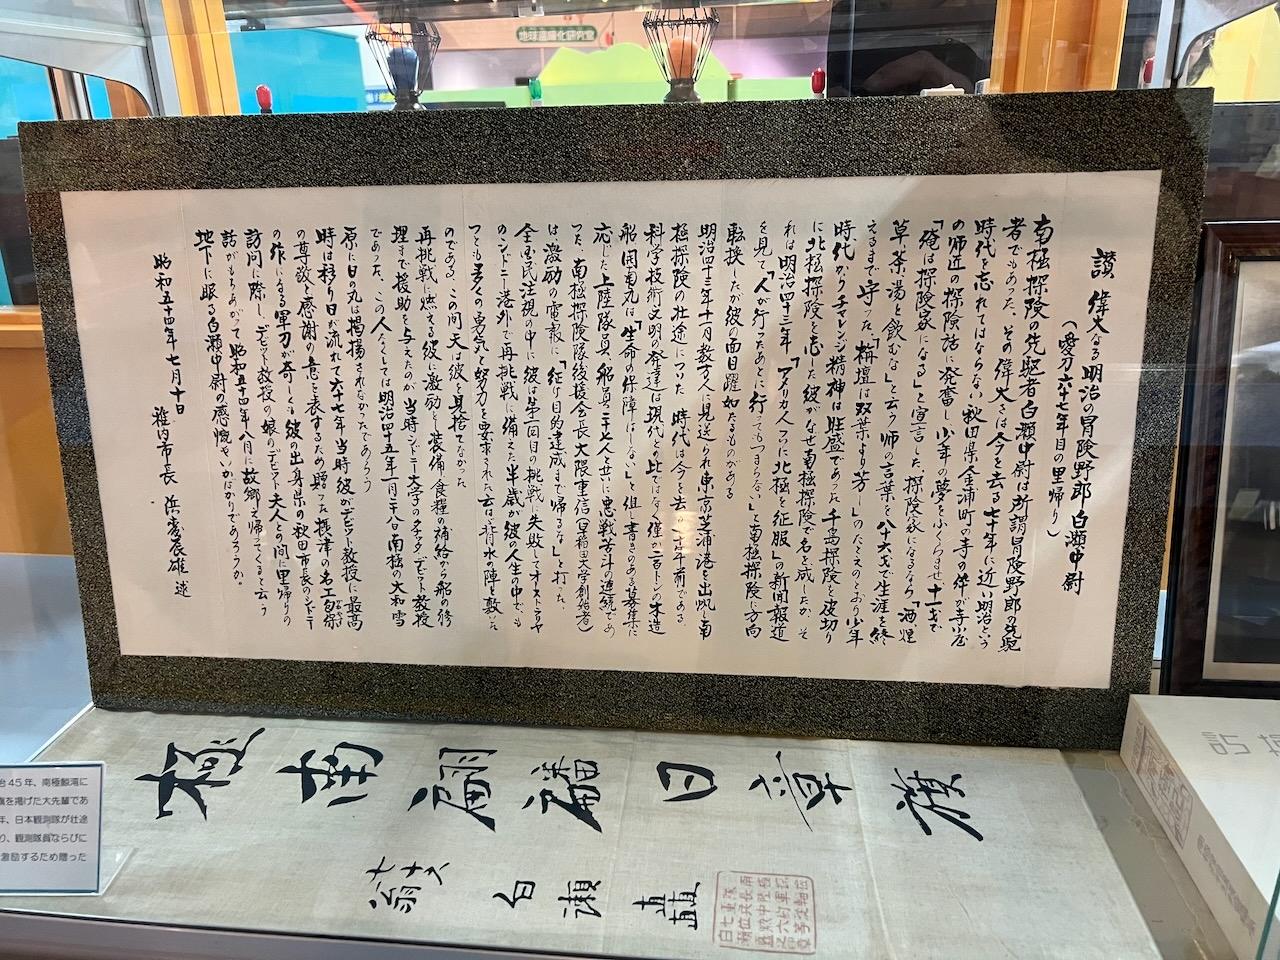 讃 偉大なる明治の冒険野郎 白瀬中尉
(愛刀六十七年目の里帰り)
南極探険の先駆者白瀬中尉は所謂冒険野郎の先駆
者でもあった。その偉大さは今を去る七十年に近い明治という
時代を忘れてはならない 秋田県金浦町の寺の伜が寺小屋
の師匠の探険話に発奮し少年の夢をふくらませ十一才で
「俺は探険家になる」と宣言した、探険家になるなら「酒 煙
草 茶 湯を飲むな」と云う師の言葉を八十六才で生涯を終
えるまで守った。「栴檀は双葉より芳し」のたとえのとおり少年
時代からチャレンジ精神は旺盛であった 千島探険を皮切り
に北極探険を志した彼がなぜ南極探険で名を成したか、そ
れは明治四十三年、「アメリカ人ついに北極を征服」の新聞報道
を見て「人が行ったあとに行ってもつまらない」と南極探険に方向
転換したが彼の面目躍如たるものがある
明治四十三年十一月数万人に見送られ東京芝浦港を出帆し南
極探険の壮途についた 時代は今を去る七十年前である。
科学技術文明の発達は現代の比ではない 僅か二百トンの木造
船開南丸は「生命の保障はしない」と但し書きのある募集に
応じた上陸隊員、船員二十七人と共に悪戦苦斗の連続であ
った、南極探険隊後援会長大隈重信(早稲田大学創始者)
は激励の電報に、「征け目的達成まで帰るな」と打った。
全国民注視の中に彼は第一回目の挑戦に失敗してオーストラリヤ
のシドニー港外で再挑戦に備えた半歳が彼の人生の中でも
っとも多くの勇気と努力を要求された云はば背水の陣を敷いた
のである、この間 天は彼を見捨てなかった
再挑戦に燃える彼に激励と装備、食糧の補給から船の修
理まで援助を与えたのが当時シドニー大学のタナタ・デビット教授
であった、この人なくしては明治四十五年一月二十八日南極の大和雪
原に日の丸は掲揚されなかったであろう
時は移り日が流れて六十七年 当時彼がデビット教授に最高
の尊敬と感謝の意を表するため贈った摂津の名工包保
の作になる軍刀が奇しくも彼の出身県の秋田市長のシドニー
訪問に際し、デビット教授の娘のデビット夫人との間に里帰りの
話がもちあがって昭和五十四年八月に故郷へ帰ってくると云う
地下に眠る白瀬中尉の感慨やいかばかりであろうか。
昭和五十四年七月十日
稚内市長 浜森辰雄 述
旗章日翩翻南極
白瀬矗
七十六翁
治45年、南極鯨湾に
旗を掲げた大先輩であ
年、日本観測隊が壮途
り、観測隊員ならびに
激励するため贈った